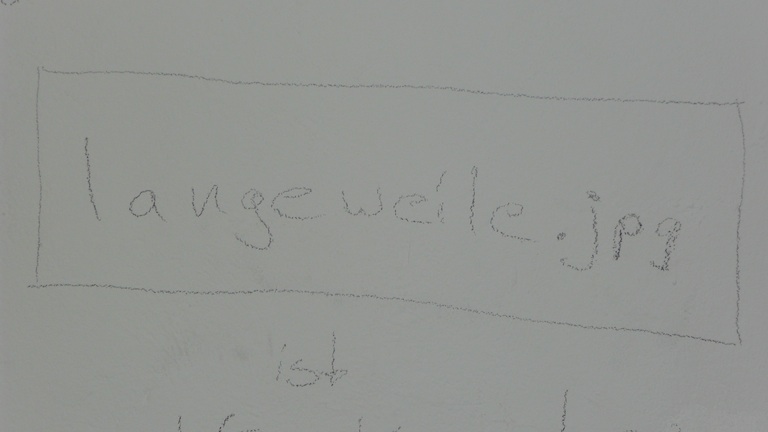 langeweile.jpg
ist